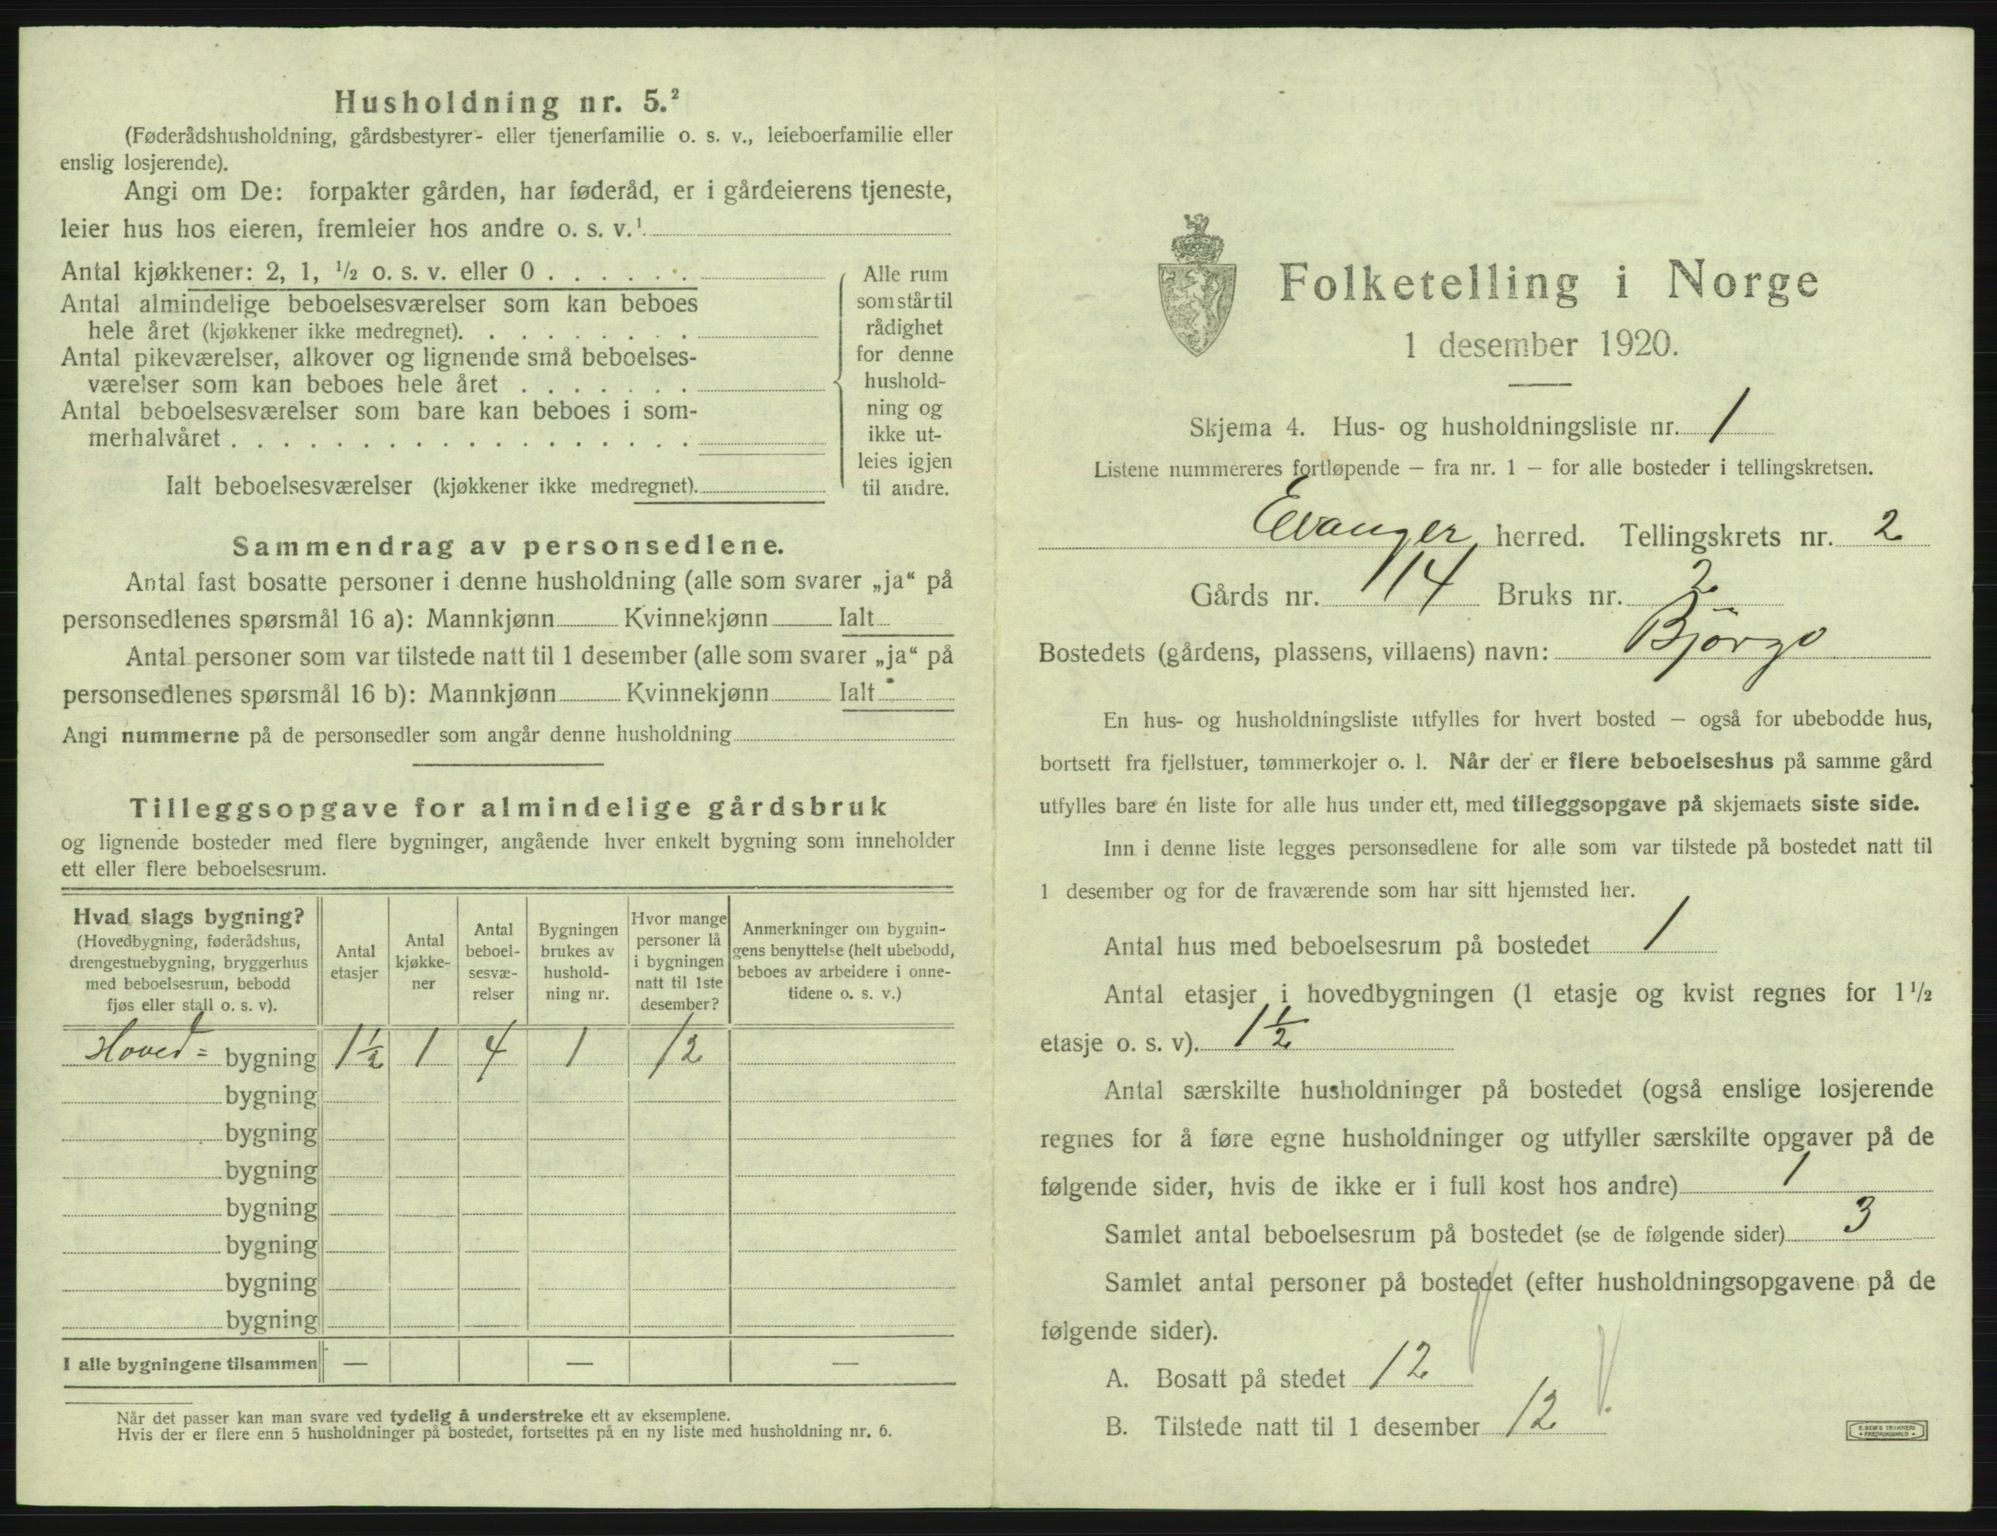 Husholdning nr. 5.²
(Føderådshusholdning, gårdsbestyrer- eller tjenerfamilie o. s. v., leieboerfamilie eller
enslig losjerende).
Angi om De: forpakter gården, har føderåd, er i gårdeierens tjeneste,
leier hus hos eieren, fremleier hos andre o. s. v.¹
Antal kjøkkener: 2, 1, ½ o. s. v. eller 0 . . . . . .
Antal almindelige beboelsesværelser som kan beboes
hele året (kjøkkener ikke medregnet). . . . . . . . .
Antal pikeværelser, alkover og lignende små beboelses-
værelser som kan beboes hele året . . . . . . .
Antal beboelsesværelser som bare kan beboes i som-
merhalvåret . . . . . . . . . . . . . . . . . .
Ialt beboelsesværelser (kjøkkener ikke medregnet).
Alle rum
som står til
rådighet
for denne
hushold-
ning og
ikke ut-
leies igjen
til andre.
Sammendrag av personsedlene.
Antal fast bosatte personer i denne husholdning (alle som svarer „ja“ på
personsedlenes spørsmål 16 a): Mannkjønn Kvinnekjønn Ialt
Antal personer som var tilstede natt til 1 desember (alle som svarer „ja“ på
personsedlenes spørsmål 16 b): Mannkjønn Kvinnekjønn Ialt
Angi nummerne på de personsedler som angår denne husholdning
Tilleggsopgave for almindelige gårdsbruk
og lignende bosteder med flere bygninger, angående hver enkelt bygning som inneholder
ett eller flere beboelsesrum.
Hvad slags bygning?
(Hovedbygning, føderådshus,
drengestuebygning, bryggerhus
med beboelsesrum, bebodd
fjøs eller stall o. s. v).
Antal
etasjer
Antal
kjøkke-
ner
Antal
beboel-
sesvæ-
relser
Bygningen
brukes av
hushold-
ning nr.
Hvor mange
personer lå
i bygningen
natt til 1ste
desember?
Anmerkninger om bygnin-
gens benyttelse (helt ubebodd,
beboes av arbeidere i onne-
tidene o. s. v.)
Hoved= bygning 1½ 1 4 1 12
bygning
bygning
bygning
bygning
bygning
bygning
bygning
I alle bygningene tilsammen — — —
Når det passer kan man svare ved tydelig å understreke ett av eksemplene.
Hvis der er flere enn 5 husholdninger på bostedet, fortsettes på en ny liste med husholdning nr. 6.
Folketelling i Norge
1 desember 1920.
Skjema 4. Hus- og husholdningsliste nr. 1
Listene nummereres fortløpende – fra nr. 1 – for alle bosteder i tellingskretsen.
Evanger herred. Tellingskrets nr. 2
Gårds nr. 114 Bruks nr. 2
Bostedets (gårdens, plassens, villaens) navn: Bjørgo
En hus- og husholdningsliste utfylles for hvert bosted – også for ubebodde hus,
bortsett fra fjellstuer, tømmerkojer o. l. Når der er flere beboelseshus på samme gård
utfylles bare én liste for alle hus under ett, med tilleggsopgave på skjemaets siste side.
Inn i denne liste legges personsedlene for alle som var tilstede på bostedet natt til
1 desember og for de fraværende som har sitt hjemsted her.
Antal hus med beboelsesrum på bostedet 1
Antal etasjer i hovedbygningen (1 etasje og kvist regnes for 1½
etasje o. s. v). 1½
Antal særskilte husholdninger på bostedet (også enslige losjerende
regnes for å føre egne husholdninger og utfyller særskilte opgaver på de
følgende sider, hvis de ikke er i full kost hos andre) 1
Samlet antal beboelsesrum på bostedet (se de følgende sider) 3
Samlet antal personer på bostedet (efter husholdningsopgavene på de
følgende sider).
A. Bosatt på stedet 12
B. Tilstede natt til 1 desember 12